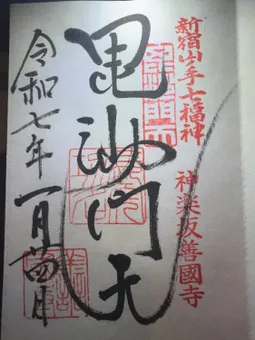 新宿山ノ手七福神
神楽坂善國寺
毘沙門天
令和七年一月廿四日